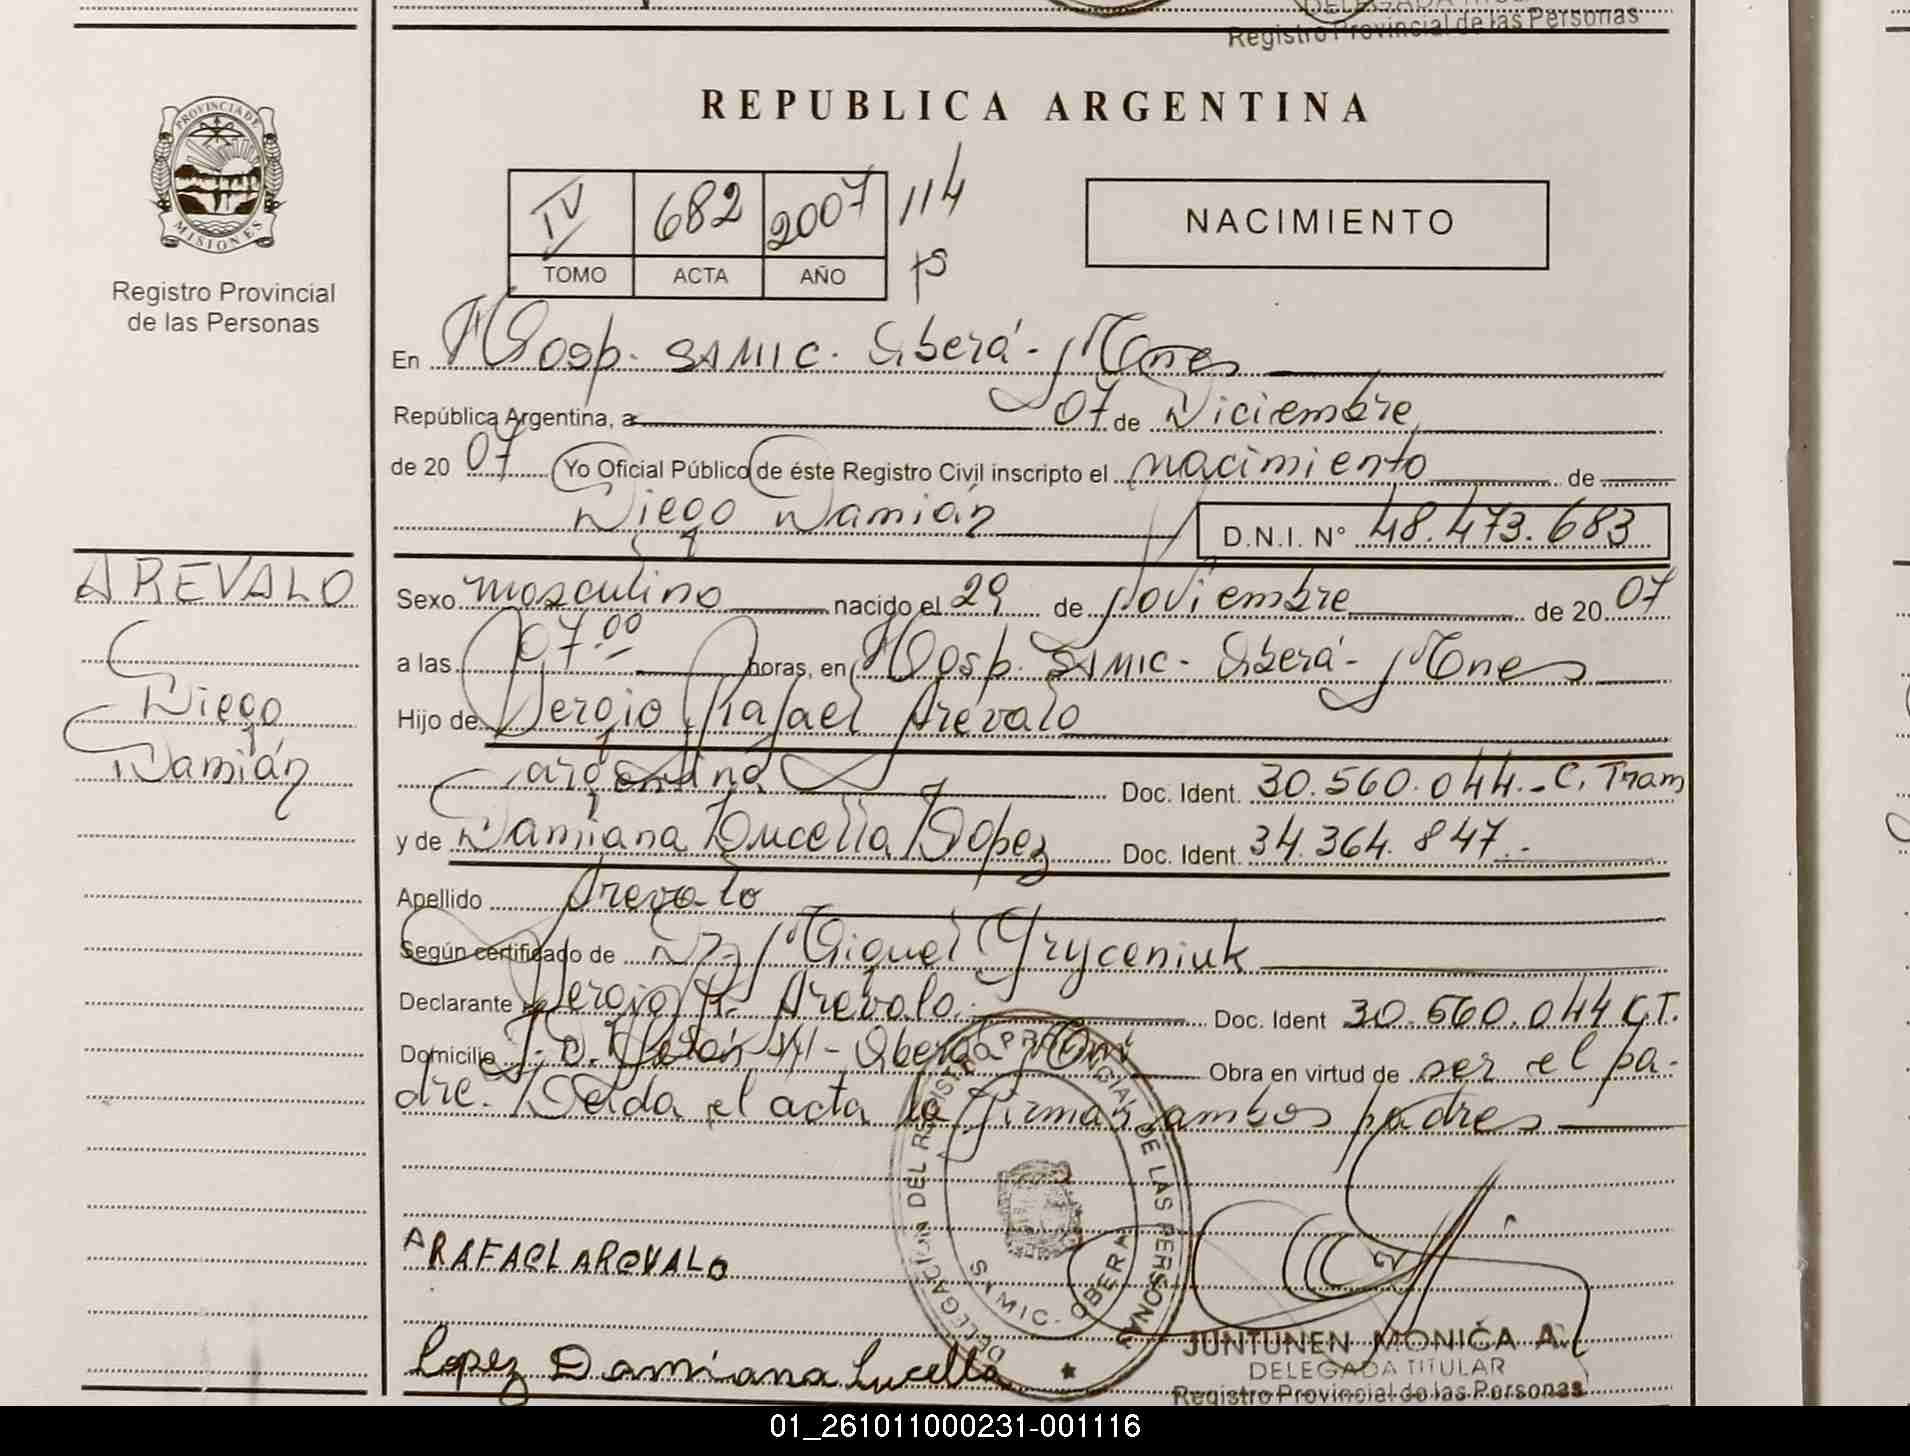 DELEGADA TITULAR
Registro Provincial de las Personas
PROVINCIA DE
MISIONES
Registro Provincial
de las Personas
REPUBLICA ARGENTINA
IV 682 2007 114
TOMO ACTA AÑO
NACIMIENTO
En Hosp. SAMIC. Oberá - Mnes
República Argentina, a 07 de Diciembre
de 20 07 Yo Oficial Público de éste Registro Civil inscripto el nacimiento de
Diego Damián D.N.I. N° 48.473.683
AREVALO
Diego
Damián
Sexo masculino nacido el 29 de Noviembre de 20 07
a las 07.00 horas, en Hosp. SAMIC - Oberá - Mnes
Hijo de Sergio Rafael Arévalo
argentina Doc. Ident. 30.560.044.- C. Tram
y de Damiana Lucella Lopez Doc. Ident. 34.364.847.-
Apellido Arevalo
Según certificado de Dr Miguel Gryceniuk
Declarante Sergio R. Arévalo. Doc. Ident 30.560.044 C.T.
Domicilio J. D. Perón S/N - Oberá Mnes Obra en virtud de ser el pa-
dre. Leída el acta la firman ambos padres
A RAFAEL AREVALO
Lopez Damiana Lucella
DELEGACION DEL REGISTRO PROVINCIAL DE LAS PERSONAS
SAMIC - OBERA
JUNTUNEN MONICA A.
DELEGADA TITULAR
Registro Provincial de las Personas
01_261011000231-001116